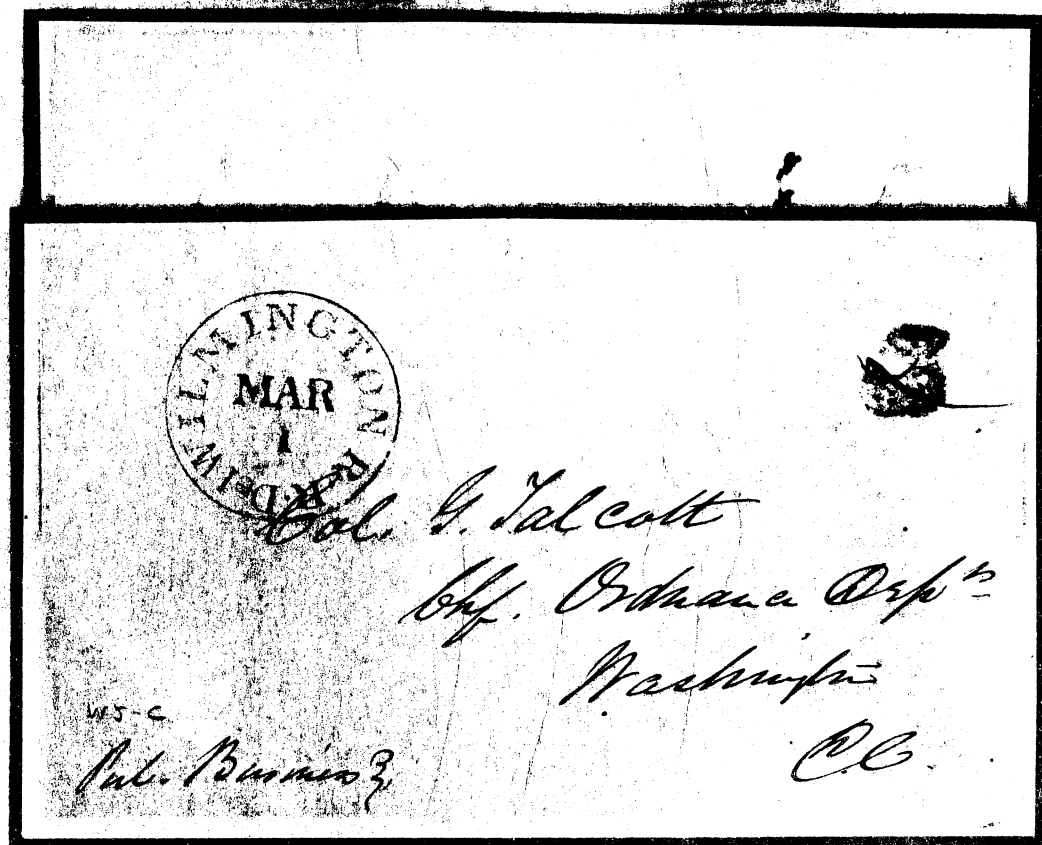 WILMINGTON R.R. Del
MAR
1
Col. G. Talcott
Chf. Ordnance Dep
Washington
D.C.
W J - C
Pub. Business